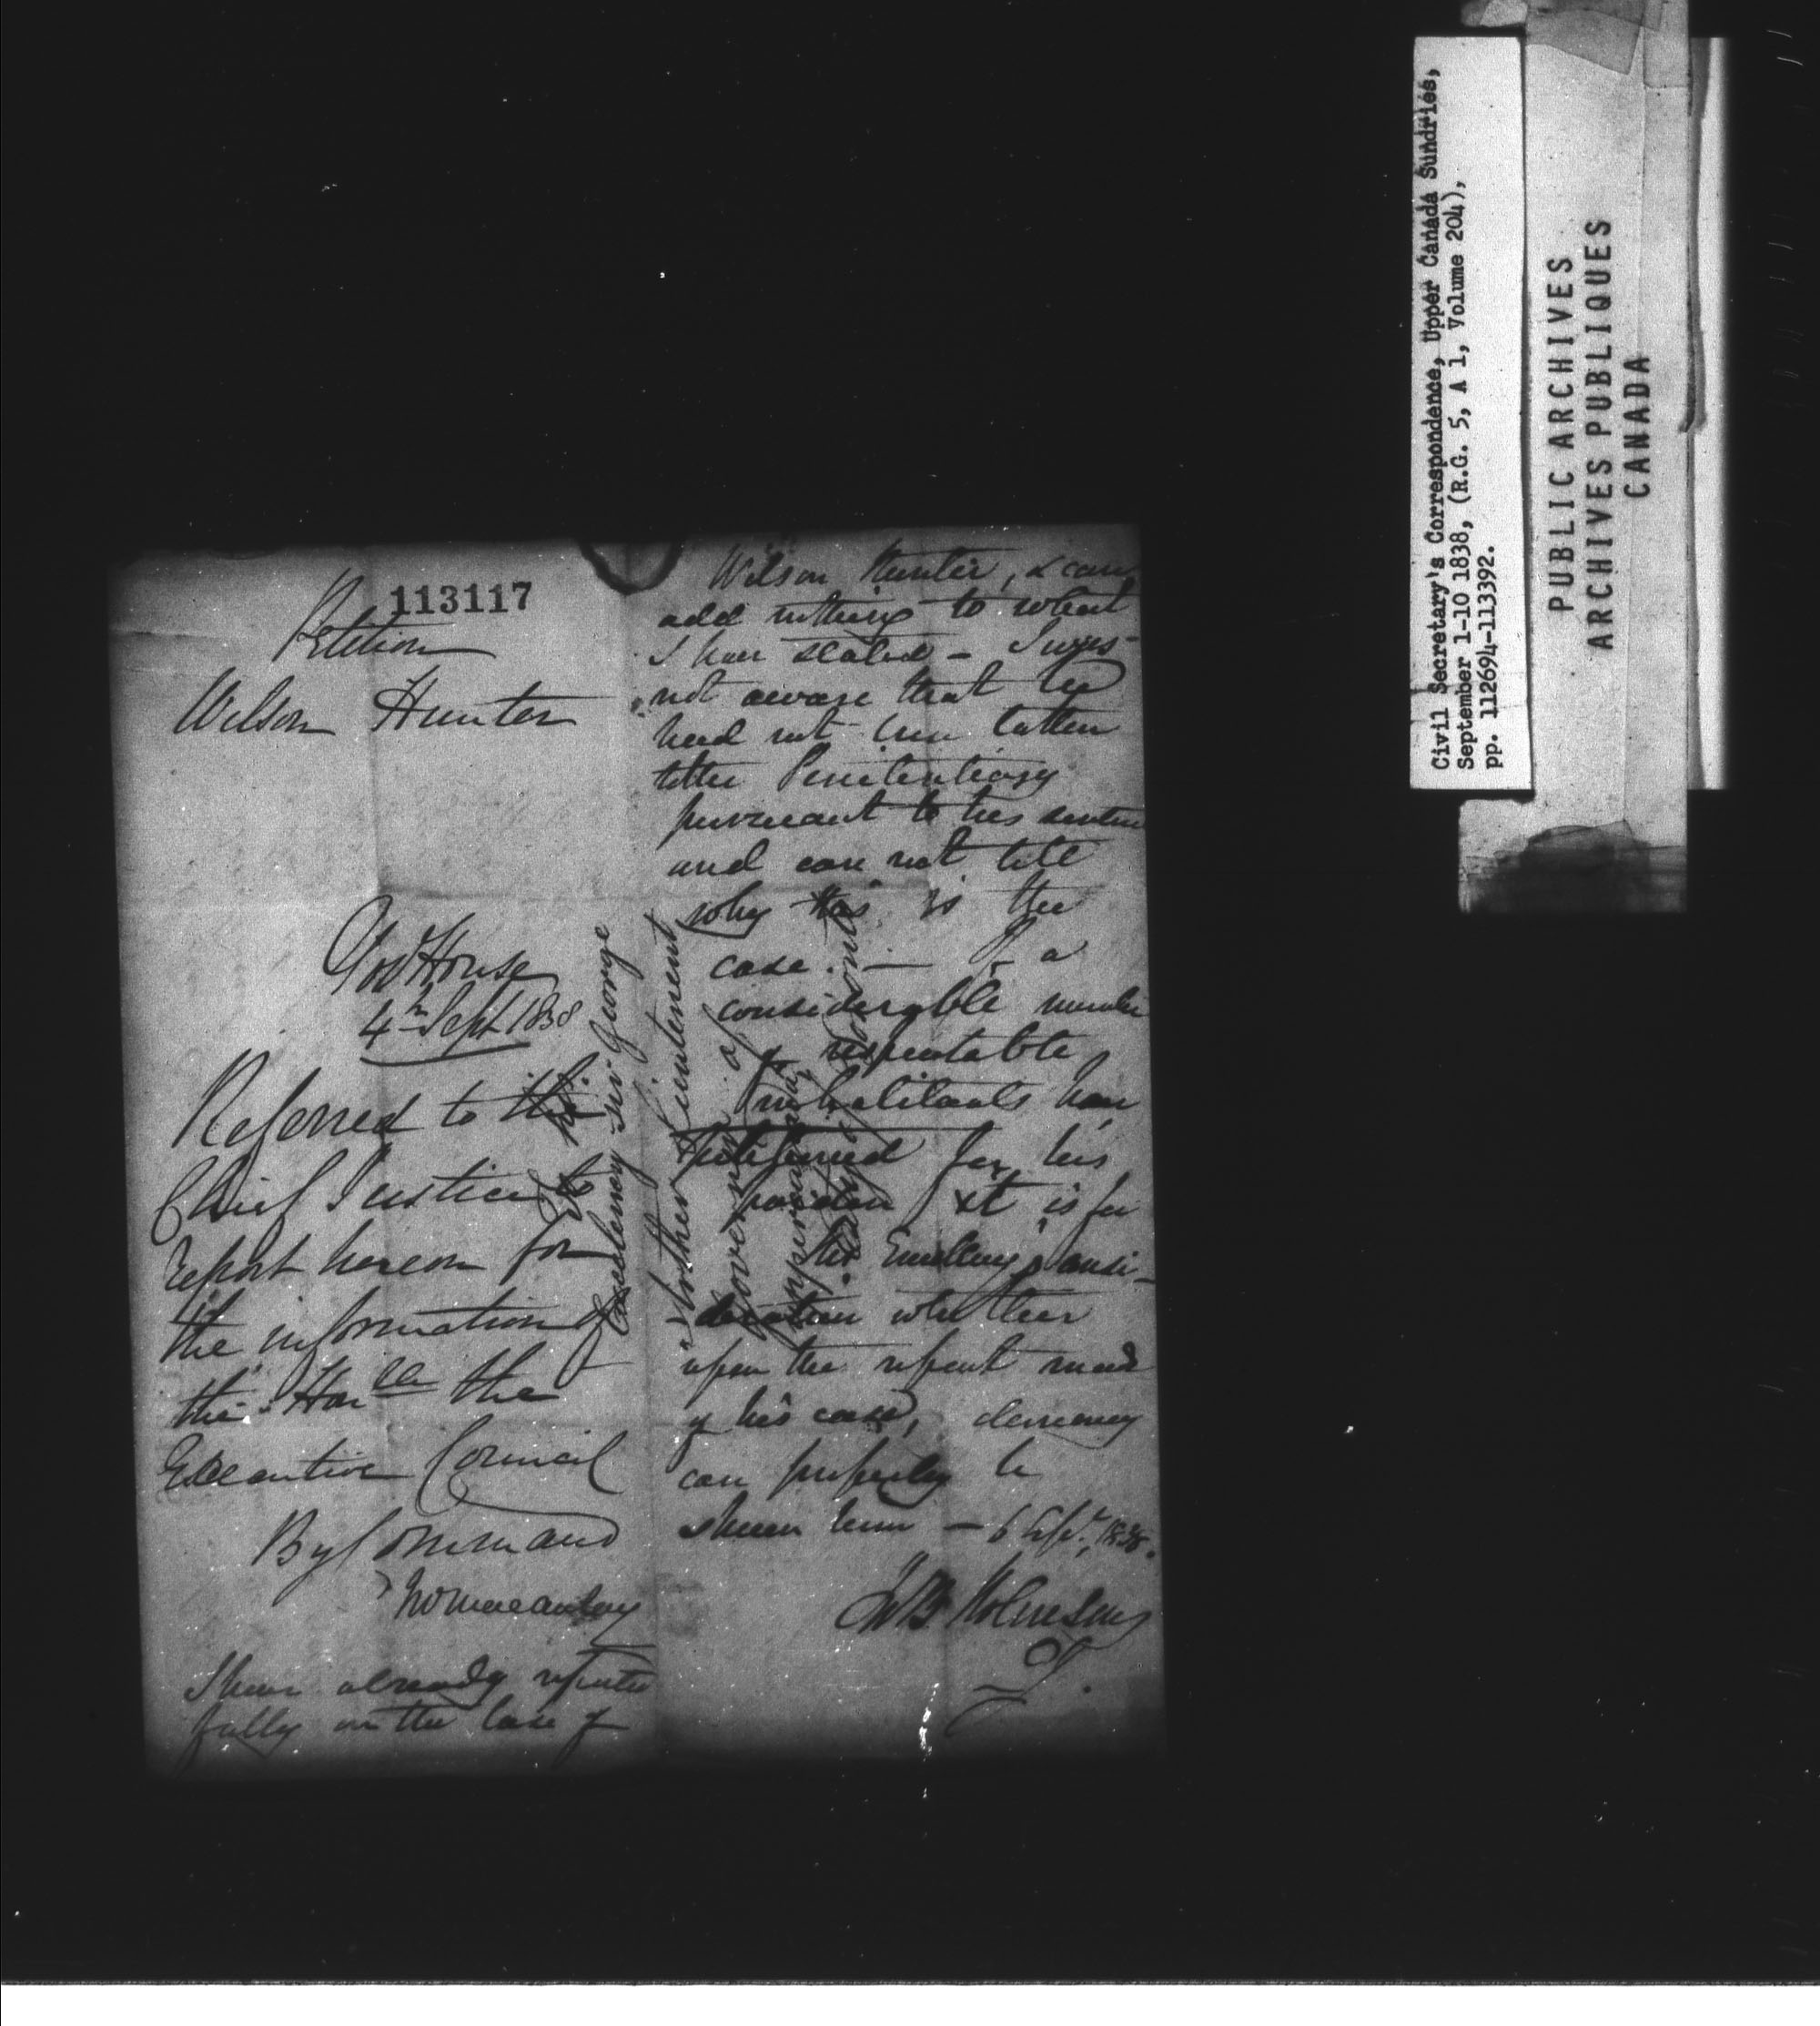 113117
Petition
Wilson Hunter
Govt House
4th Sept 1838
Referred to the
Chief Justice to
report hereon for
the information of
the Honble the
Executive Council
By Command
I have already reported
fully on the case of
Wilson Hunter, & can
add nothing to what
I have stated – I was
not aware that he
had not been taken
to the Penitentiary
pursuant to his sentence
and can not tell
why this is the
case. — If a
considerable number
of respectable
Inhabitants have
petitioned for his
pardon it is for
His Excellency's consi-
deration whether
upon the report made
of his case, clemency
can properly be
shewn him — 6 Sept. 1838.
Jno B. Robinson
To his
Excellency sir George
Arthur lieutenant
governor of
Civil Secretary's Correspondence, Upper Canada Sundries,
September 1-10 1838, (R.G. 5, A 1, Volume 204),
pp. 112694-113392.
PUBLIC ARCHIVES
ARCHIVES PUBLIQUES
CANADA